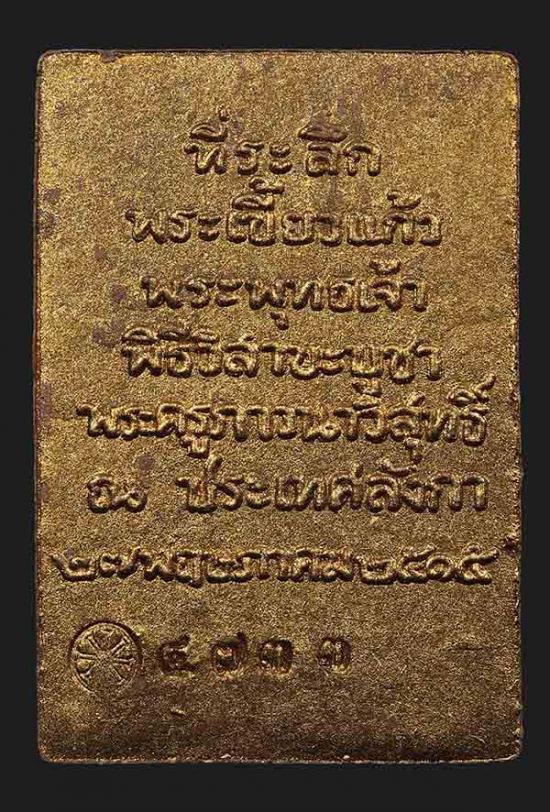 ที่ระลึก
พระเขี้ยวแก้ว
พระพุทธเจ้า
พิธีวิสาขะบูชา
พระครูภาวนาวิสุทธิ์
ณ ประเทศลังกา
๒๗ พฤษภาคม ๒๕๑๕
๔๗๓๓